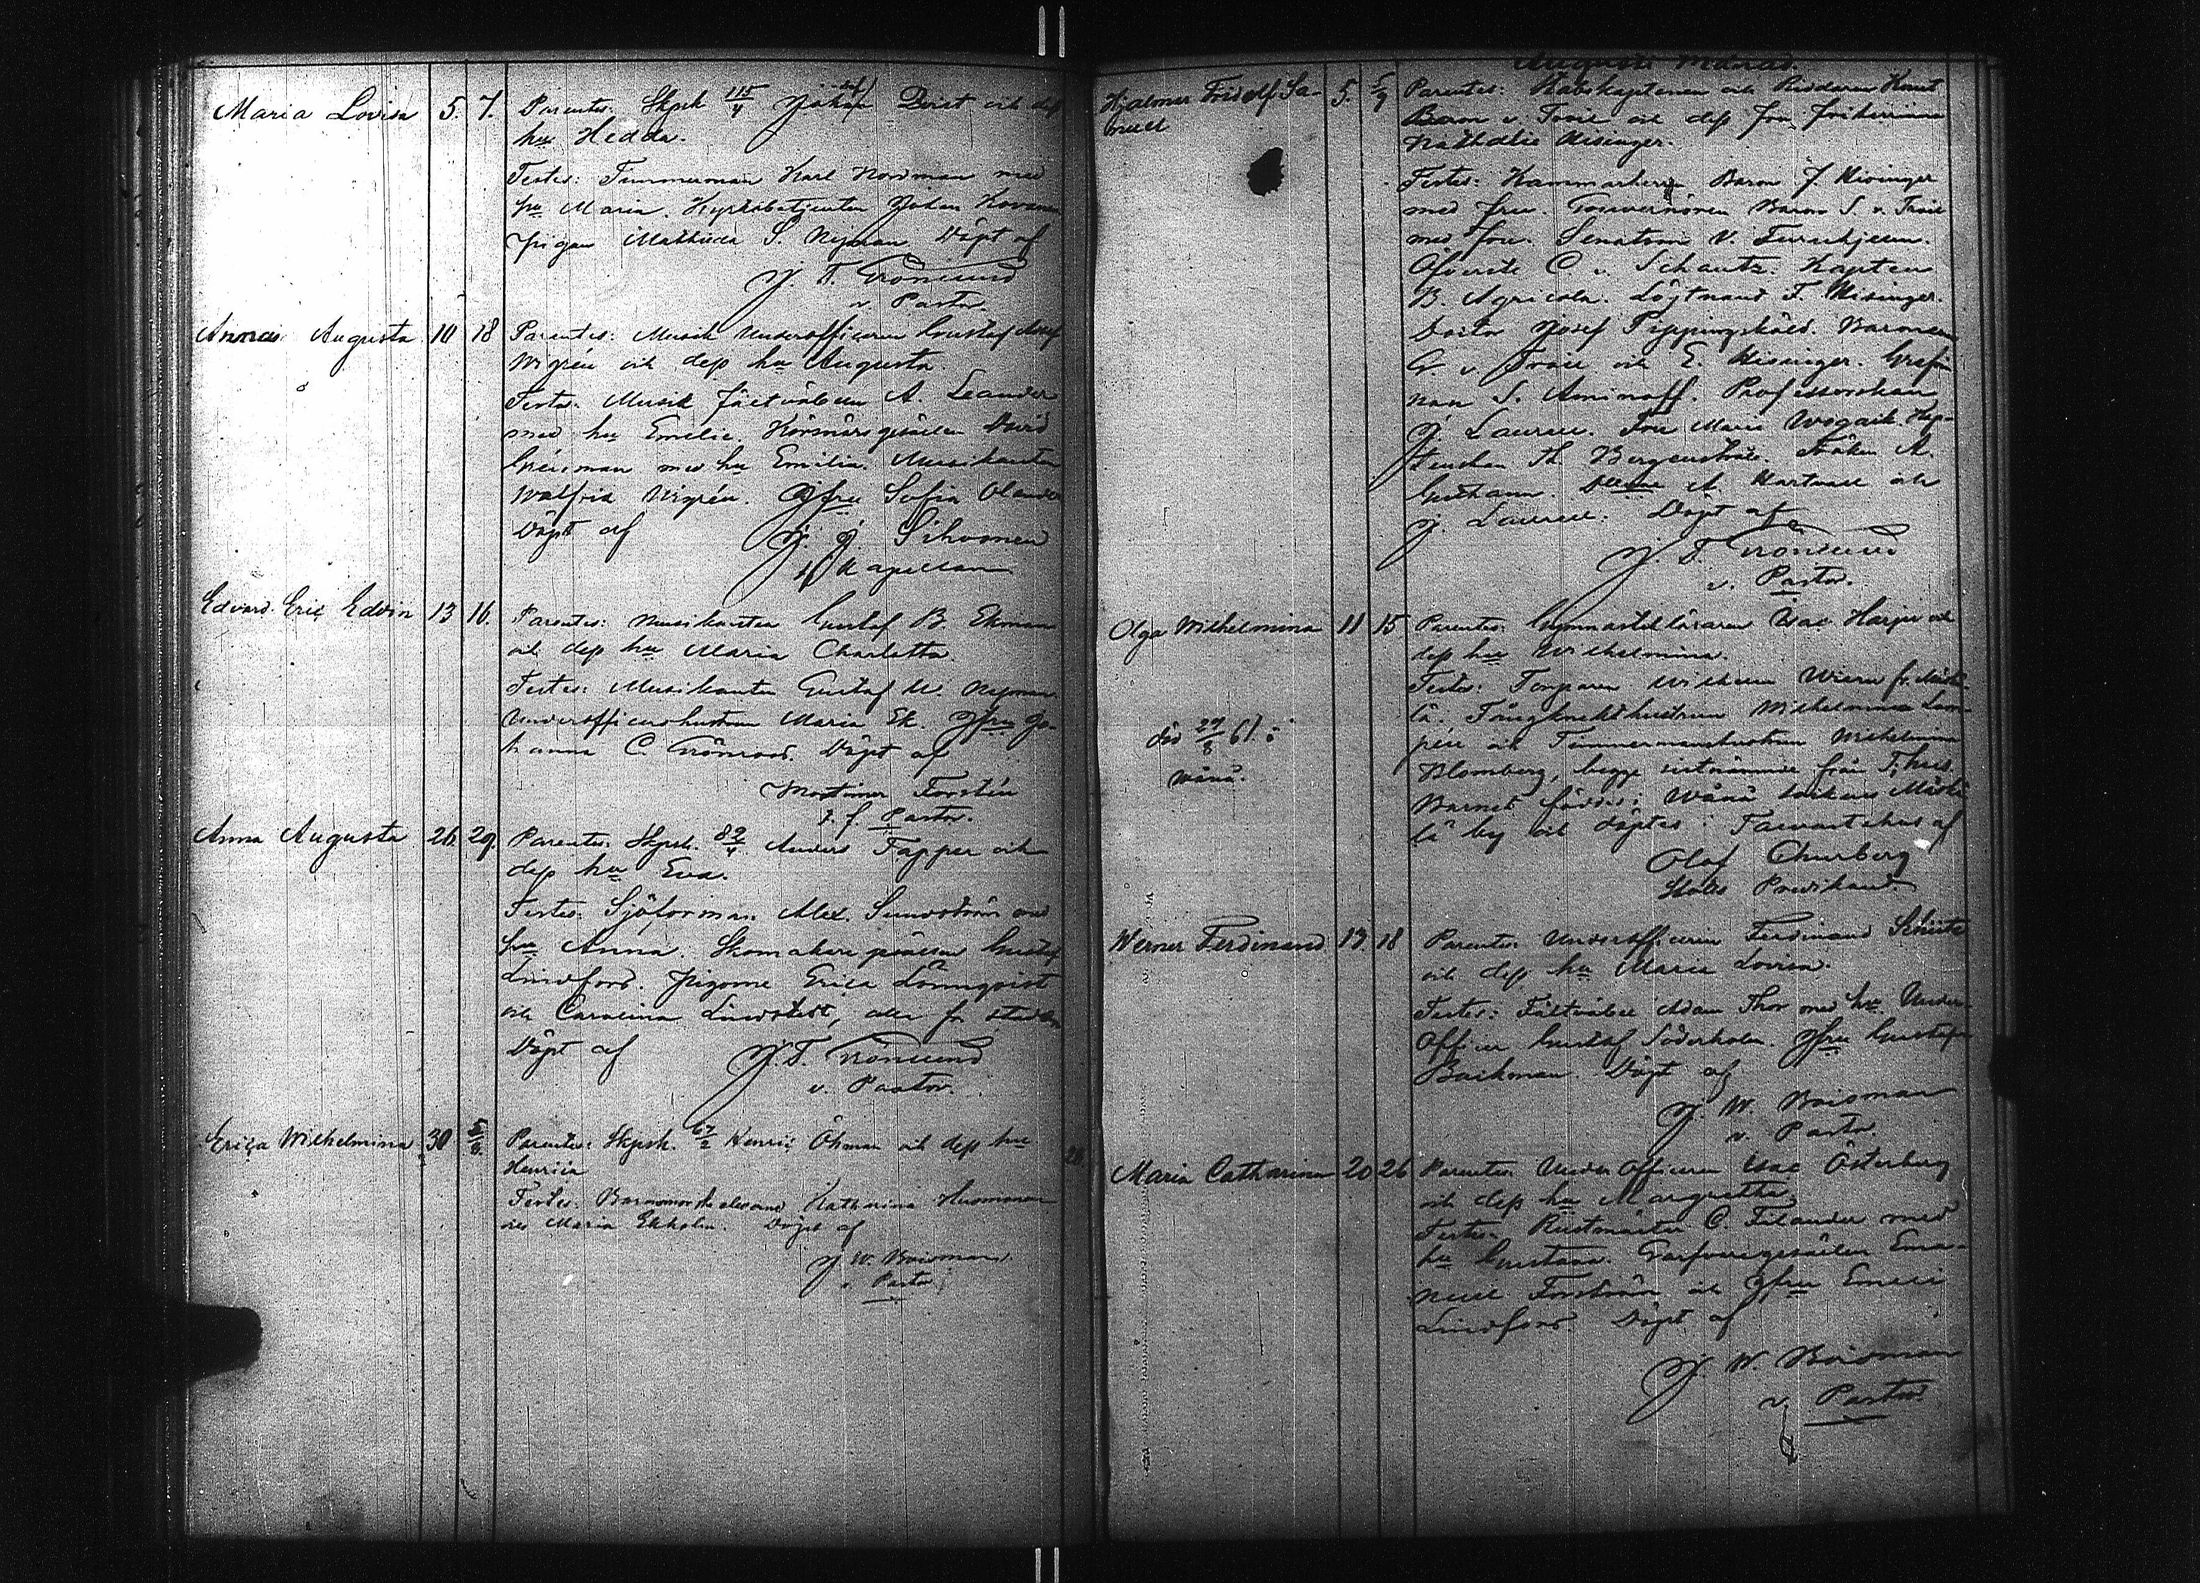 Maria Lovisa 5. 7. Parentes: Skpsk 115/4 Johan Qvist och dess
hu Hedda.
Testes: Timmerman Karl Nordman med
hu Maria. Kyrkobetjenten Johan
Pigan Mathilda S. Nyman. Döpt af
J. T. Grönlund
v. Pastor.
Anna Augusta 10 18 Parentes: Musik Underofficeren Gustaf Adolf
Wigrén och dess hu Augusta.
Testes: Musik fältväbeln A. Leander
med hu Emelie. gesällen David
man med hu Emilia. Musikanten
Walfrid Wigrén. Jfru Sofia Olander
Döpt af J. J. Sihvonen
Kapellan
Edvard Eric Edvin 13 16. Parentes: Musikanten Gustaf B. Ekman
och dess hu Maria Charlotta.
Testes: Musikanten Gustaf W. Nyman.
Underofficershustrun Maria Ek. Jfru Jo-
hanna C. Grönroos. Döpt af
Mortimer Forstén
t. f. Pastor.
Anna Augusta 26. 29. Parentes: Skpsk. 82/4 Anders Tapper och
dess hu Eva.
Testes: Sjöforman Alex. Sundström med
hu Anna. Skomakare gesällen Gustaf
Lindfors. Pigorne Erica Lönnqvist
och Carolina Lindstedt, alla fr. staden
Döpt af J. T. Grönlund
v. Pastor.
Erica Wilhelmina 30 5/8. Parentes: Skpsk. 67/2 Henric Öhman och dess hu
Henrica
Testes: Barnmorske eleverne Katharina
och Maria Ekholm. Döpt af
J. W. Boisman
v. Pastor
Augusti Månad.
Hjalmar Fridolf Sa- 5. 5/9 Parentes: Stabskaptenen och Riddaren Knut
muel Baron v. Troil och dess fru friherrinnan
Nathalie Misinger.
Testes: Kammarherre Baron J. Misinger
med fru. Gouvernören Baron S. v. Troil
med fru. Senatorn V. Furuhjelm.
Öfverste C. v. Schantz. Kapten
B. Agricola. Löjtnant F. Misinger.
Doctor Josef Pippingsköld. Baronerne
G v. Troil och E. Misinger. Grefvin-
nan S. Aminoff. Professorskan
J. Laurell. Fru Marie
Th. Bergenstråle. Fröken A.
A. Hartwall och
J. Laurell. Döpt af
J. T. Grönlund
v. Pastor.
Olga Wilhelmina 11 15 Parentes: Gymnastikläraren Isac Harju och
dess hu Wilhelmina.
Testes: Torparen Wilhelm
lä. Wilhelmina Lam-
pén och Timmermanshustrun Wilhelmina
död 27/8 61. i Blomberg, begge sistnämnde från T:hus.
Wånå. Barnet föddes i Wånå socken
lä by och döptes i Tavastehus af
Olof Churberg
Skols Predikant
Werner Ferdinand 13. 18 Parentes: Underofficeren Ferdinand
och dess hu Maria Lovisa.
Testes: Fältväbel Adam Thor med hu. Under-
Officer Gustaf Söderholm. Jfru Gustafva
Backman. Döpt af
J. W. Boisman
v. Pastor.
Maria Catharina 20 26 Parentes: Under Officeren Isac Österberg
och dess hu Margretha.
Testes: Rustmästar C. Felander med
hu Gustava. Garfvaregesällen Ema-
nuel Forström och Jfru Emeli
Lindfors. Döpt af
J. W. Boisman
v. Pastor.